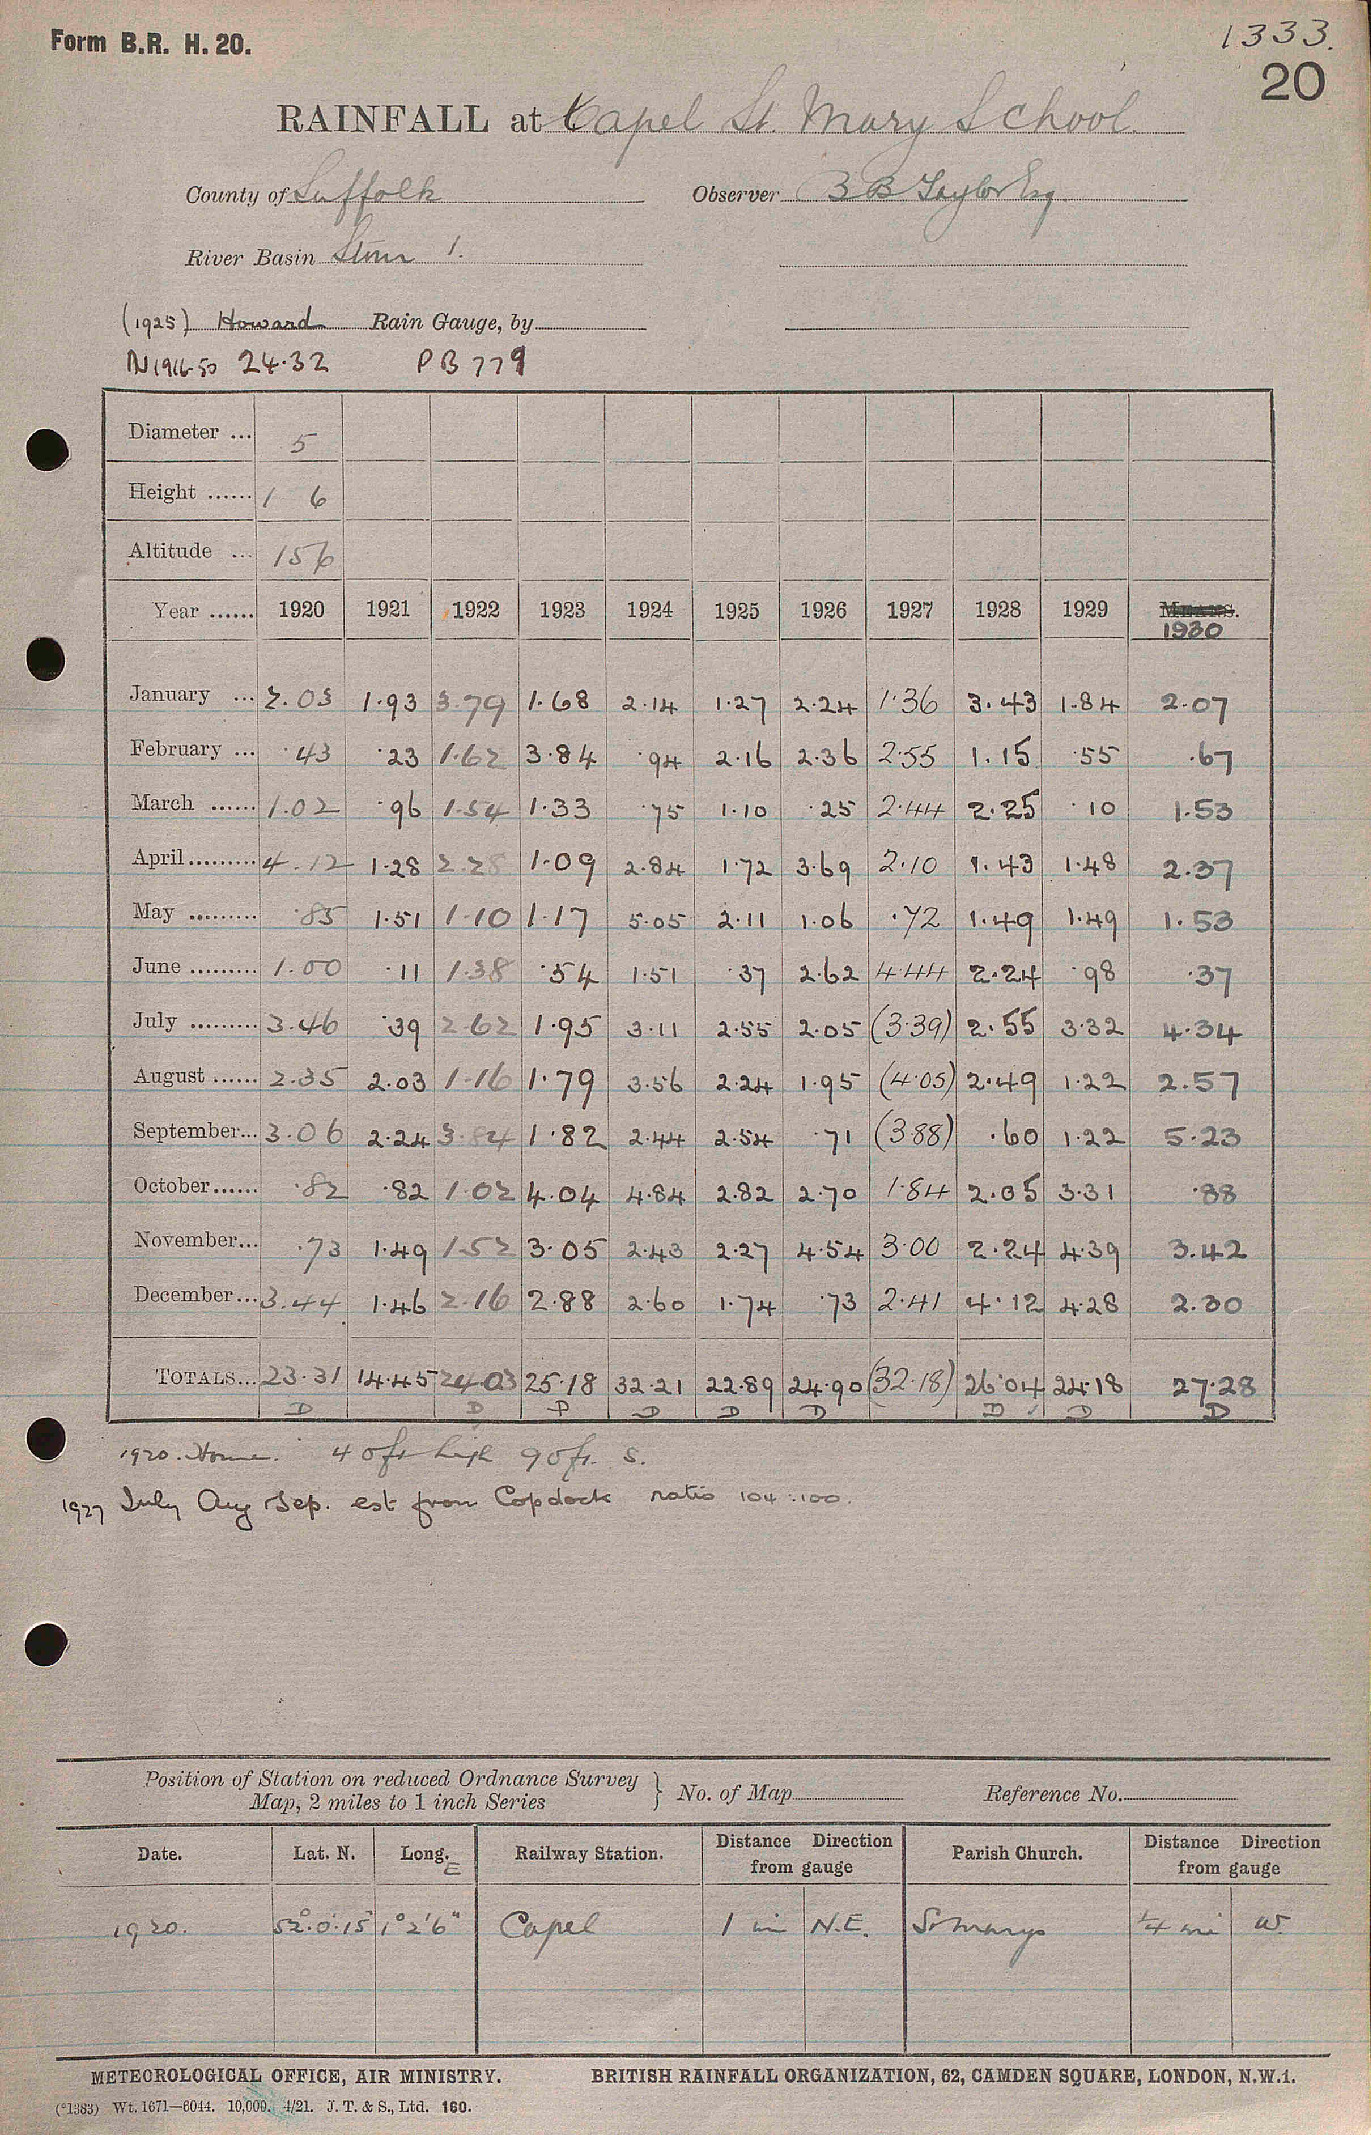 Form B.R. H. 20.
1333.
20
RAINFALL at Capel St. Mary School.
County of Suffolk Observer B B Taylor Esq
River Basin Stour 1.
(1925) Howard Rain Gauge, by
N 1916-50 24.32 PB 779
Diameter ... 5
Height ...... 1 6
Altitude ... 156
Year ...... 1920 1921 1922 1923 1924 1925 1926 1927 1928 1929 MEANS. 1930
January ... 2.03 1.93 3.79 1.68 2.14 1.27 2.24 1.36 3.43 1.84 2.07
February ... .43 .23 1.62 3.84 .94 2.16 2.36 2.55 1.15 .55 .67
March ...... 1.02 .96 1.54 1.33 .75 1.10 .25 2.44 2.25 .10 1.53
April......... 4.12 1.28 2.28 1.09 2.84 1.72 3.69 2.10 1.43 1.48 2.37
May ......... .85 1.51 1.10 1.17 5.05 2.11 1.06 .72 1.49 1.49 1.53
June ......... 1.00 .11 1.38 .54 1.51 .37 2.62 4.44 2.24 .98 .37
July ......... 3.46 .39 2.62 1.95 3.11 2.55 2.05 (3.39) 2.55 3.32 4.34
August ...... 2.35 2.03 1.16 1.79 3.56 2.24 1.95 (4.05) 2.49 1.22 2.57
September... 3.06 2.24 3.84 1.82 2.44 2.54 .71 (3.88) .60 1.22 5.23
October...... .82 .82 1.02 4.04 4.84 2.82 2.70 1.84 2.05 3.31 .88
November... .73 1.49 1.52 3.05 2.43 2.27 4.54 3.00 2.24 4.39 3.42
December... 3.44 1.46 2.16 2.88 2.60 1.74 .73 2.41 4.12 4.28 2.30
TOTALS... 23.31 14.45 24.03 25.18 32.21 22.89 24.90 (32.18) 26.04 24.18 27.28
D D P D D D D D D
1920. House. 40ft high 90ft. S.
1927 July Aug Sep. est from Copdock ratio 104:100.
Position of Station on reduced Ordnance Survey Map, 2 miles to 1 inch Series } No. of Map Reference No.
Date. Lat. N. Long. E Railway Station. Distance from gauge Direction Parish Church. Distance from gauge Direction
1920. 52°.0'.15" 1°2'6" Capel 1 mi N.E. St Marys 1/4 mi W.
METEOROLOGICAL OFFICE, AIR MINISTRY. BRITISH RAINFALL ORGANIZATION, 62, CAMDEN SQUARE, LONDON, N.W.1.
(*1383) Wt. 1671—6044. 10,000. 4/21. J. T. & S., Ltd. 160.